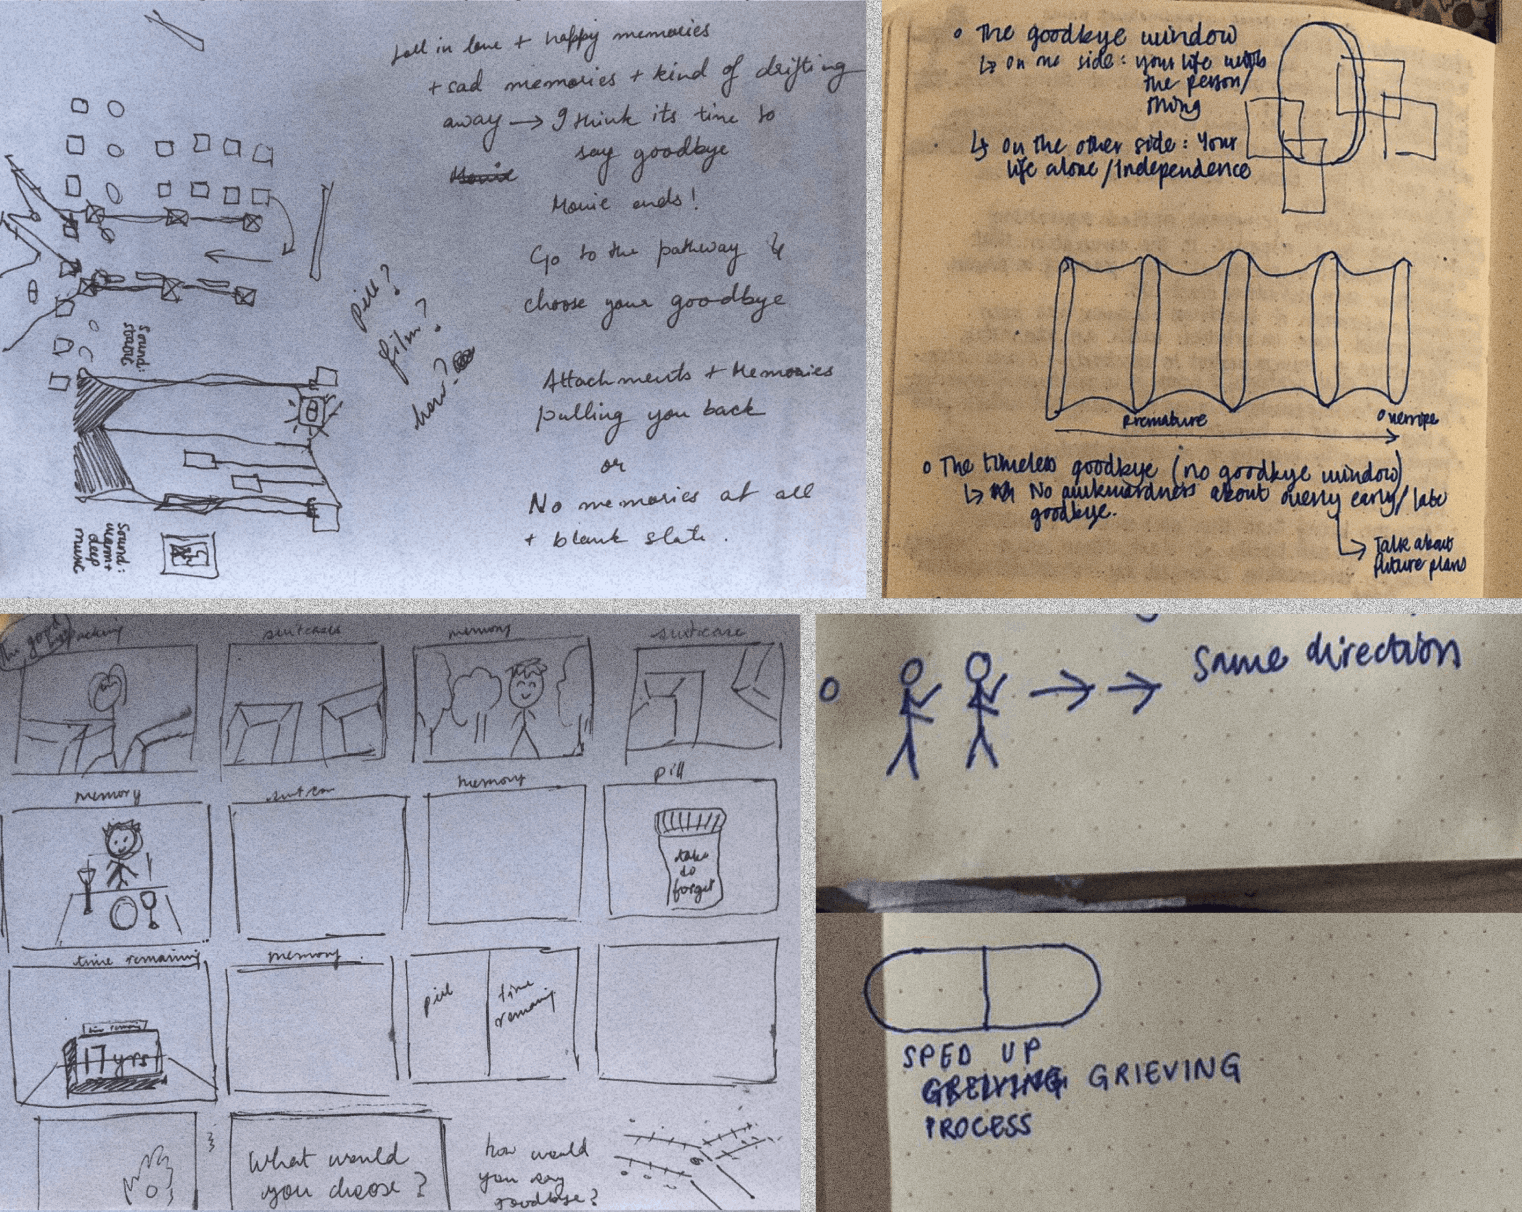 fall in love + happy memories
+ sad memories + kind of drifting
away → I think its time to
say goodbye
Movie
Movie ends!
Go to the pathway &
choose your goodbye
Attachments + Memories
pulling you back
or
No memories at all
+ blank slate.
Pill?
film?
how?
Sound:
Sound:
warm +
deep
music
The goodbye window
↳ On one side: your life with
the person/
thing
↳ On the other side: Your
life alone/Independence
Premature
Overripe
The timeless goodbye (no goodbye window)
↳ No awkwardness about overly early/late
goodbye.
↳ Talk about
future plans
packing
suitcases
memory
suitcase
memory
memory
pill
take
to
forget
time remaining
memory
17 yrs
pill
time
remaining
What would
you choose?
how would
you say
goodbye?
Same direction
SPED UP
GREIVING GRIEVING
PROCESS